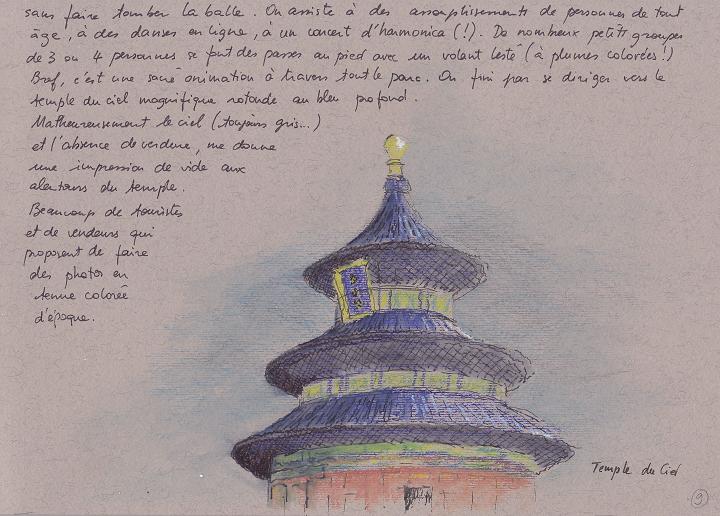 sans faire tomber la balle. On assiste à des assouplissements de personnes de tout
âge, à des danses en ligne, à un concert d'harmonica (!). De nombreux petits groupes
de 3 ou 4 personnes se font des passes au pied avec un volant lesté (à plumes colorées!)
Bref, c'est une sacré animation à travers tout le parc. On fini par se diriger vers le
temple du ciel magnifique rotonde au bleu profond.
Malheureusement le ciel (toujours gris...)
et l'absence de verdure, me donne
une impression de vide aux
alentours du temple.
Beaucoup de touristes
et de vendeurs qui
proposent de faire
des photos en
tenue colorée
d'époque.
Temple du Ciel
9